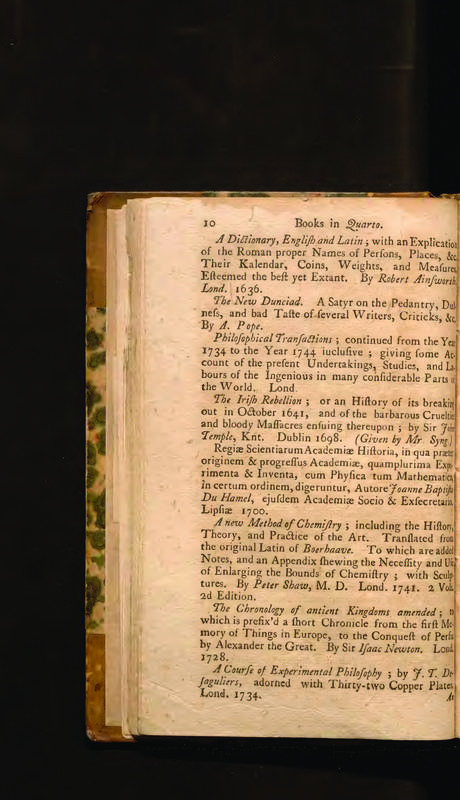 10 Books in Quarto.
A Dictionary, Engliſh and Latin ; with an Explication
of the Roman proper Names of Perſons, Places, &c.
Their Kalendar, Coins, Weights, and Meaſures,
Eſteemed the beſt yet Extant. By Robert Ainſworth
Lond. 1636.
The New Dunciad. A Satyr on the Pedantry, Dul
neſs, and bad Taſte of ſeveral Writers, Criticks, &c.
By A. Pope.
Philoſophical Tranſactions ; continued from the Year
1734 to the Year 1744 iucluſive ; giving ſome Ac-
count of the preſent Undertakings, Studies, and La-
bours of the Ingenious in many conſiderable Parts of
the World. Lond
The Iriſh Rebellion ; or an Hiſtory of its breaking
out in October 1641, and of the barbarous Crueltie
and bloody Maſſacres enſuing thereupon ; by Sir John
Temple, Knt. Dublin 1698. (Given by Mr. Syng)
Regiæ Scientiarum Academiæ Hiſtoria, in qua præter
originem & progreſſus Academiæ, quamplurima Expe
rimenta & Inventa, cum Phyſica tum Mathematica,
in certum ordinem, digeruntur, Autore Joanne Baptiſta
Du Hamel, ejuſdem Academiæ Socio & Exſecretario,
Lipſiæ 1700.
A new Method of Chemiſtry ; including the Hiſtory,
Theory, and Practice of the Art. Tranſlated from
the original Latin of Boerhaave. To which are added
Notes, and an Appendix ſhewing the Neceſſity and Uſe
of Enlarging the Bounds of Chemiſtry ; with Sculp
tures. By Peter Shaw, M. D. Lond. 1741. 2 Vols.
2d Edition.
The Chronology of antient Kingdoms amended ; to
which is prefix'd a ſhort Chronicle from the firſt Me-
mory of Things in Europe, to the Conqueſt of Perſia
by Alexander the Great. By Sir Iſaac Newton. Lond.
1728.
A Courſe of Experimental Philoſophy ; by J. T. De-
ſaguliers, adorned with Thirty-two Copper Plates,
Lond. 1734. At